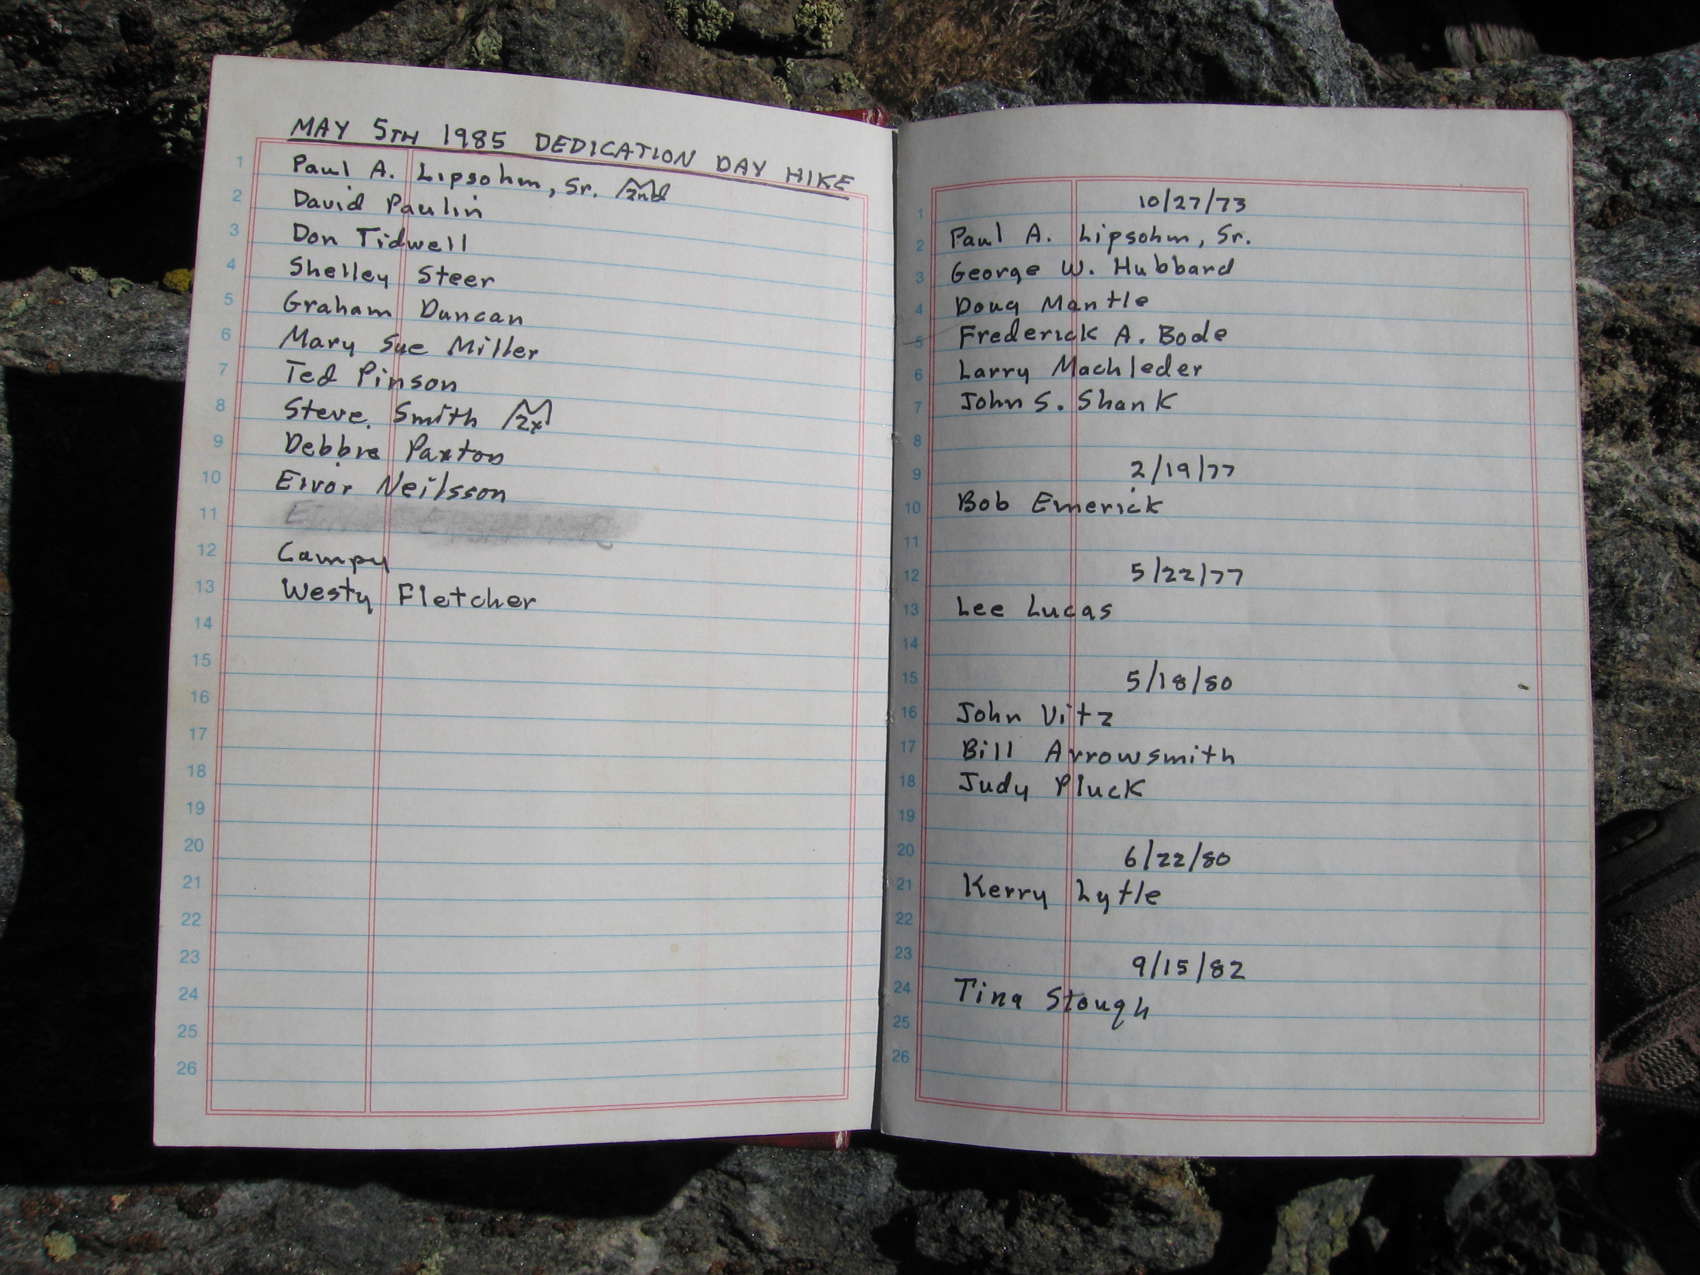 MAY 5TH 1985 DEDICATION DAY HIKE
1 Paul A. Lipsohm, Sr. 2nd
2 David Paulin
3 Don Tidwell
4 Shelley Steer
5 Graham Duncan
6 Mary Sue Miller
7 Ted Pinson
8 Steve Smith 2x
9 Debbie Paxton
10 Eivor Neilsson
11
12 Campy
13 Westy Fletcher
14
15
16
17
18
19
20
21
22
23
24
25
26
1 10/27/73
2 Paul A. Lipsohm, Sr.
3 George W. Hubbard
4 Doug Mantle
5 Frederick A. Bode
6 Larry Machleder
7 John S. Shank
8
9 2/19/77
10 Bob Emerick
11
12 5/22/77
13 Lee Lucas
14
15 5/18/80
16 John Vitz
17 Bill Arrowsmith
18 Judy Pluck
19
20 6/22/80
21 Kerry Lytle
22
23 9/15/82
24 Tina Stough
25
26